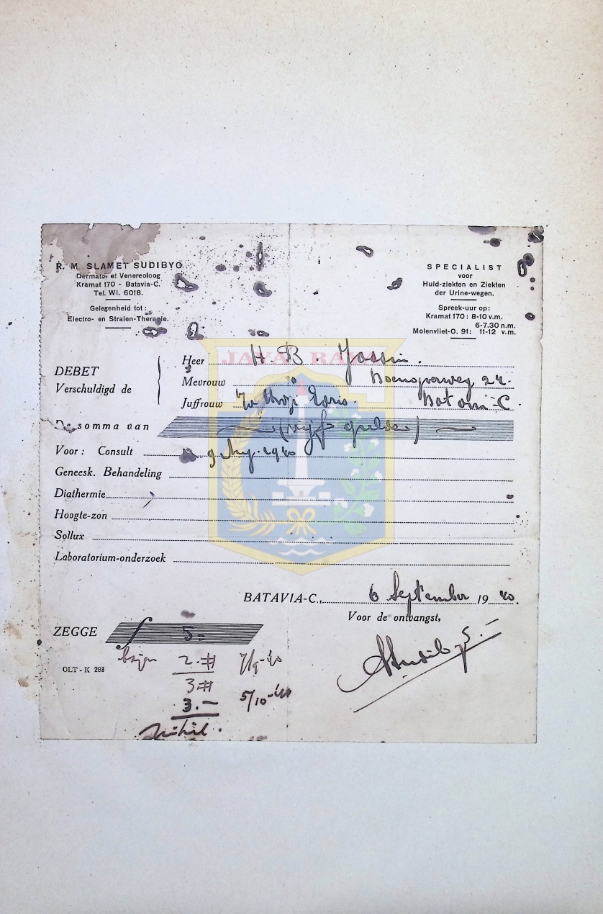 R. M. SLAMET SUDIBYO
Dermato- et Venereoloog
Kramat 170 - Batavia-C.
Tel. Wl. 6018.
Gelegenheid tot:
Electro- en Stralen-Therapie.
SPECIALIST
voor
Huid-ziekten en Ziekten
der Urine-wegen.
Spreek-uur op:
Kramat 170: 8-10 v.m.
6-7.30 n.m.
Molenvliet-O. 91: 11-12 v.m.
JAYA RAYA
DEBET
Verschuldigd de
Heer H B Jassin.
Mevrouw
Juffrouw
Batavia-C
De somma van (vijf gulden)
Voor: Consult 9 Aug. 1940
Geneesk. Behandeling
Diathermie
Hoogte-zon
Sollux
Laboratorium-onderzoek
BATAVIA-C., 6 September 1940.
Voor de ontvangst,
ZEGGE ƒ 5.-
2.- 7/9-'40
3.-
3.- 5/10-'40
OLT - K 298